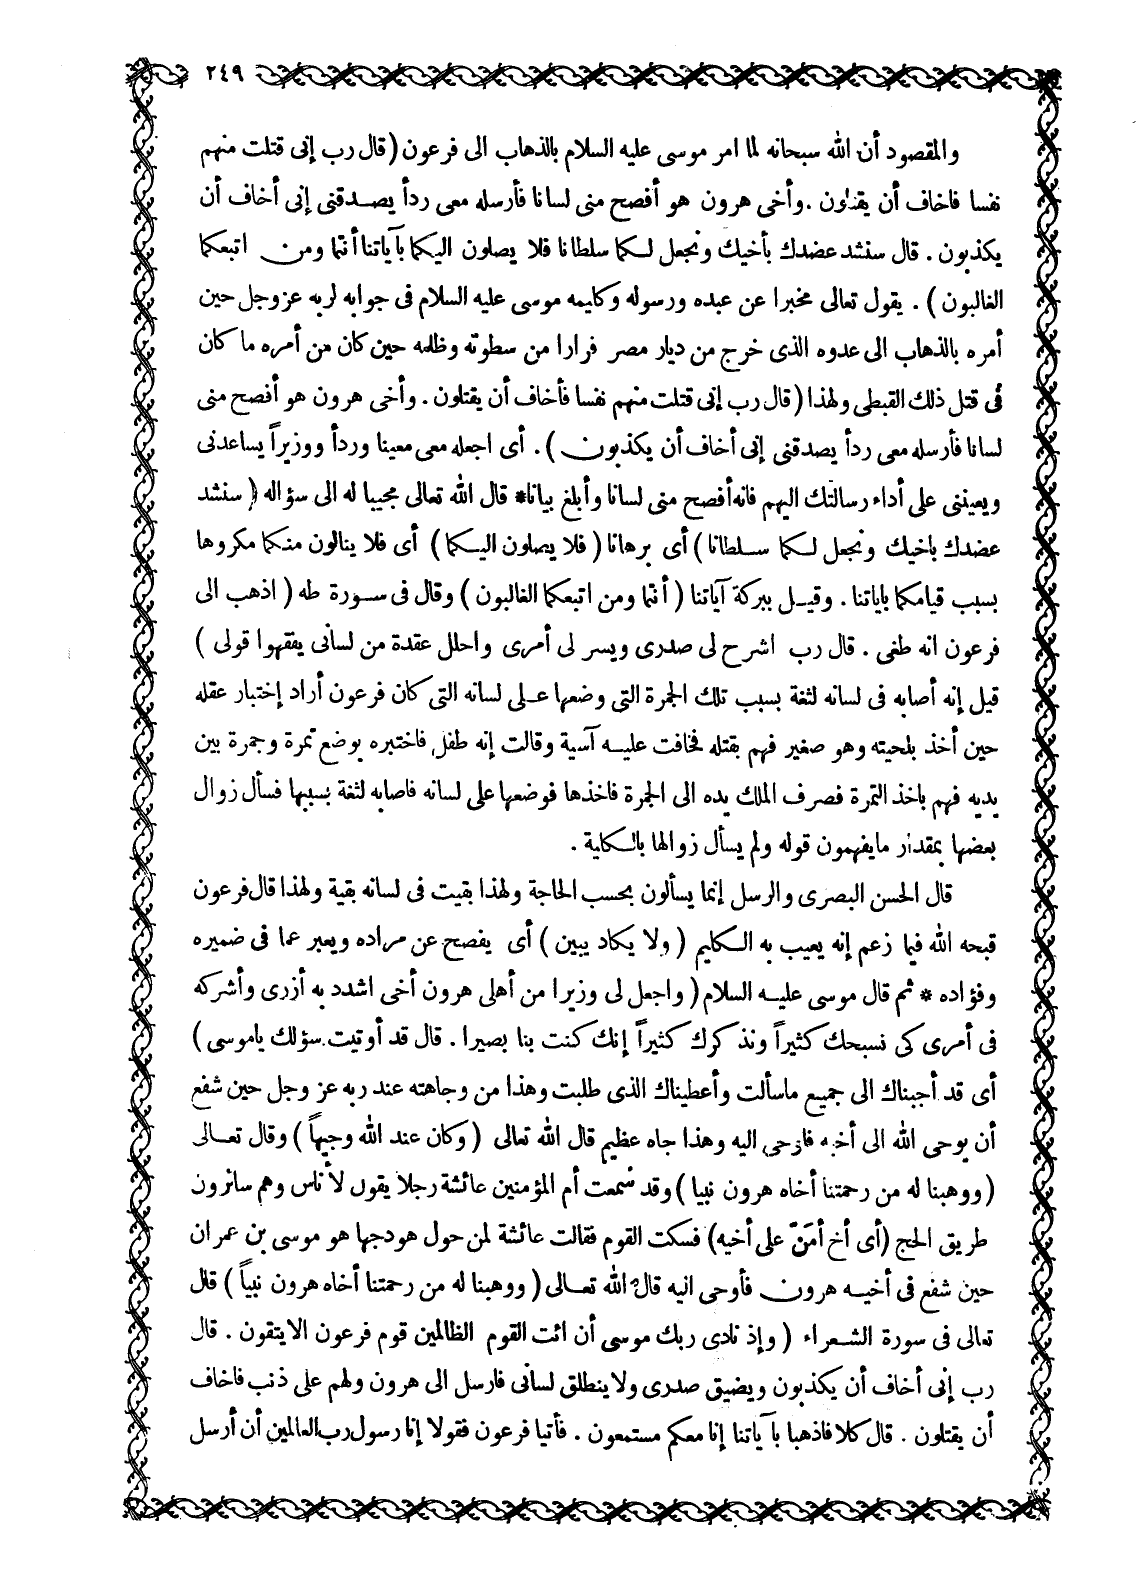 ٢٤٩
والمقصود أن الله سبحانه لما امر موسى عليه السلام بالذهاب الى فرعون (قال رب إنى قتلت منهم
نفسا فاخاف أن يقتلون . وأخى هرون هو أفصح منى لسانا فأرسله معى ردأ يصدقنى إنى أخاف أن
يكذبون . قال سنشد عضدك بأخيك ونجعل لكما سلطانا فلا يصلون اليكما بآياتنا أنتما ومن اتبعكما
الغالبون ) . يقول تعالى مخبرا عن عبده ورسوله وكليمه موسى عليه السلام فى جوابه لربه عز وجل حين
أمره بالذهاب الى عدوه الذى خرج من ديار مصر فرارا من سطوته وظلمه حين كان من أمره ما كان
فى قتل ذلك القبطى ولهذا ( قال رب إنى قتلت منهم نفسا فأخاف أن يقتلون . وأخى هرون هو أفصح منى
لسانا فأرسله معى ردأ يصدقنى إنى أخاف أن يكذبون ) . أى اجعله معى معينا وردأ ووزيراً يساعدنى
ويعيننى على أداء رسالتك اليهم فانه أفصح منى لسانا وأبلغ بيانا* قال الله تعالى مجيبا له الى سؤاله ( سنشد
عضدك باخيك ونجعل لكما سلطانا ) أى برهانا ( فلا يصلون اليكما ) أى فلا ينالون منكما مكروها
بسبب قيامكما باياتنا . وقيل ببركة آياتنا ( أنتما ومن اتبعكما الغالبون ) وقال فى سورة طه ( اذهب الى
فرعون انه طغى . قال رب اشرح لى صدرى ويسر لى أمرى واحلل عقدة من لسانى يفقهوا قولى )
قيل إنه أصابه فى لسانه لثغة بسبب تلك الجمرة التى وضعها على لسانه التى كان فرعون أراد إختبار عقله
حين أخذ بلحيته وهو صغير فهم بقتله فخافت عليه آسية وقالت إنه طفل فاختبره بوضع تمرة وجمرة بين
يديه فهم باخذ التمرة فصرف الملك يده الى الجمرة فاخذها فوضعها على لسانه فاصابه لثغة بسببها فسأل زوال
بعضها بمقدار مايفهمون قوله ولم يسأل زوالها بالكلية .
قال الحسن البصرى والرسل إنما يسألون بحسب الحاجة ولهذا بقيت فى لسانه بقية ولهذا قال فرعون
قبحه الله فيما زعم إنه يعيب به الكليم ( ولا يكاد يبين ) أى يفصح عن مراده ويعبر عما فى ضميره
وفؤاده * ثم قال موسى عليه السلام ( واجعل لى وزيرا من أهلى هرون أخى اشدد به أزرى وأشركه
فى أمرى كى نسبحك كثيراً ونذكرك كثيراً إنك كنت بنا بصيرا . قال قد أوتيت سؤلك ياموسى )
أى قد أجبناك الى جميع ماسألت وأعطيناك الذى طلبت وهذا من وجاهته عند ربه عز وجل حين شفع
أن يوحى الله الى أخيه فاوحى اليه وهذا جاه عظيم قال الله تعالى ( وكان عند الله وجيهاً ) وقال تعالى
( ووهبنا له من رحمتنا أخاه هرون نبيا ) وقد سمعت أم المؤمنين عائشة رجلا يقول لأناس وهم سائرون
طريق الحج (أى أخ أمَنّ على أخيه) فسكت القوم فقالت عائشة لمن حول هودجها هو موسى بن عمران
حين شفع فى أخيه هرون فأوحى اليه قال الله تعالى ( ووهبنا له من رحمتنا أخاه هرون نبياً ) قال
تعالى فى سورة الشعراء ( وإذ نادى ربك موسى أن ائت القوم الظالمين قوم فرعون الايتقون . قال
رب إنى أخاف أن يكذبون ويضيق صدرى ولا ينطلق لسانى فارسل الى هرون ولهم على ذنب فاخاف
أن يقتلون . قال كلا فاذهبا بآياتنا إنا معكم مستمعون . فأتيا فرعون فقولا إنا رسول رب العالمين أن أرسل